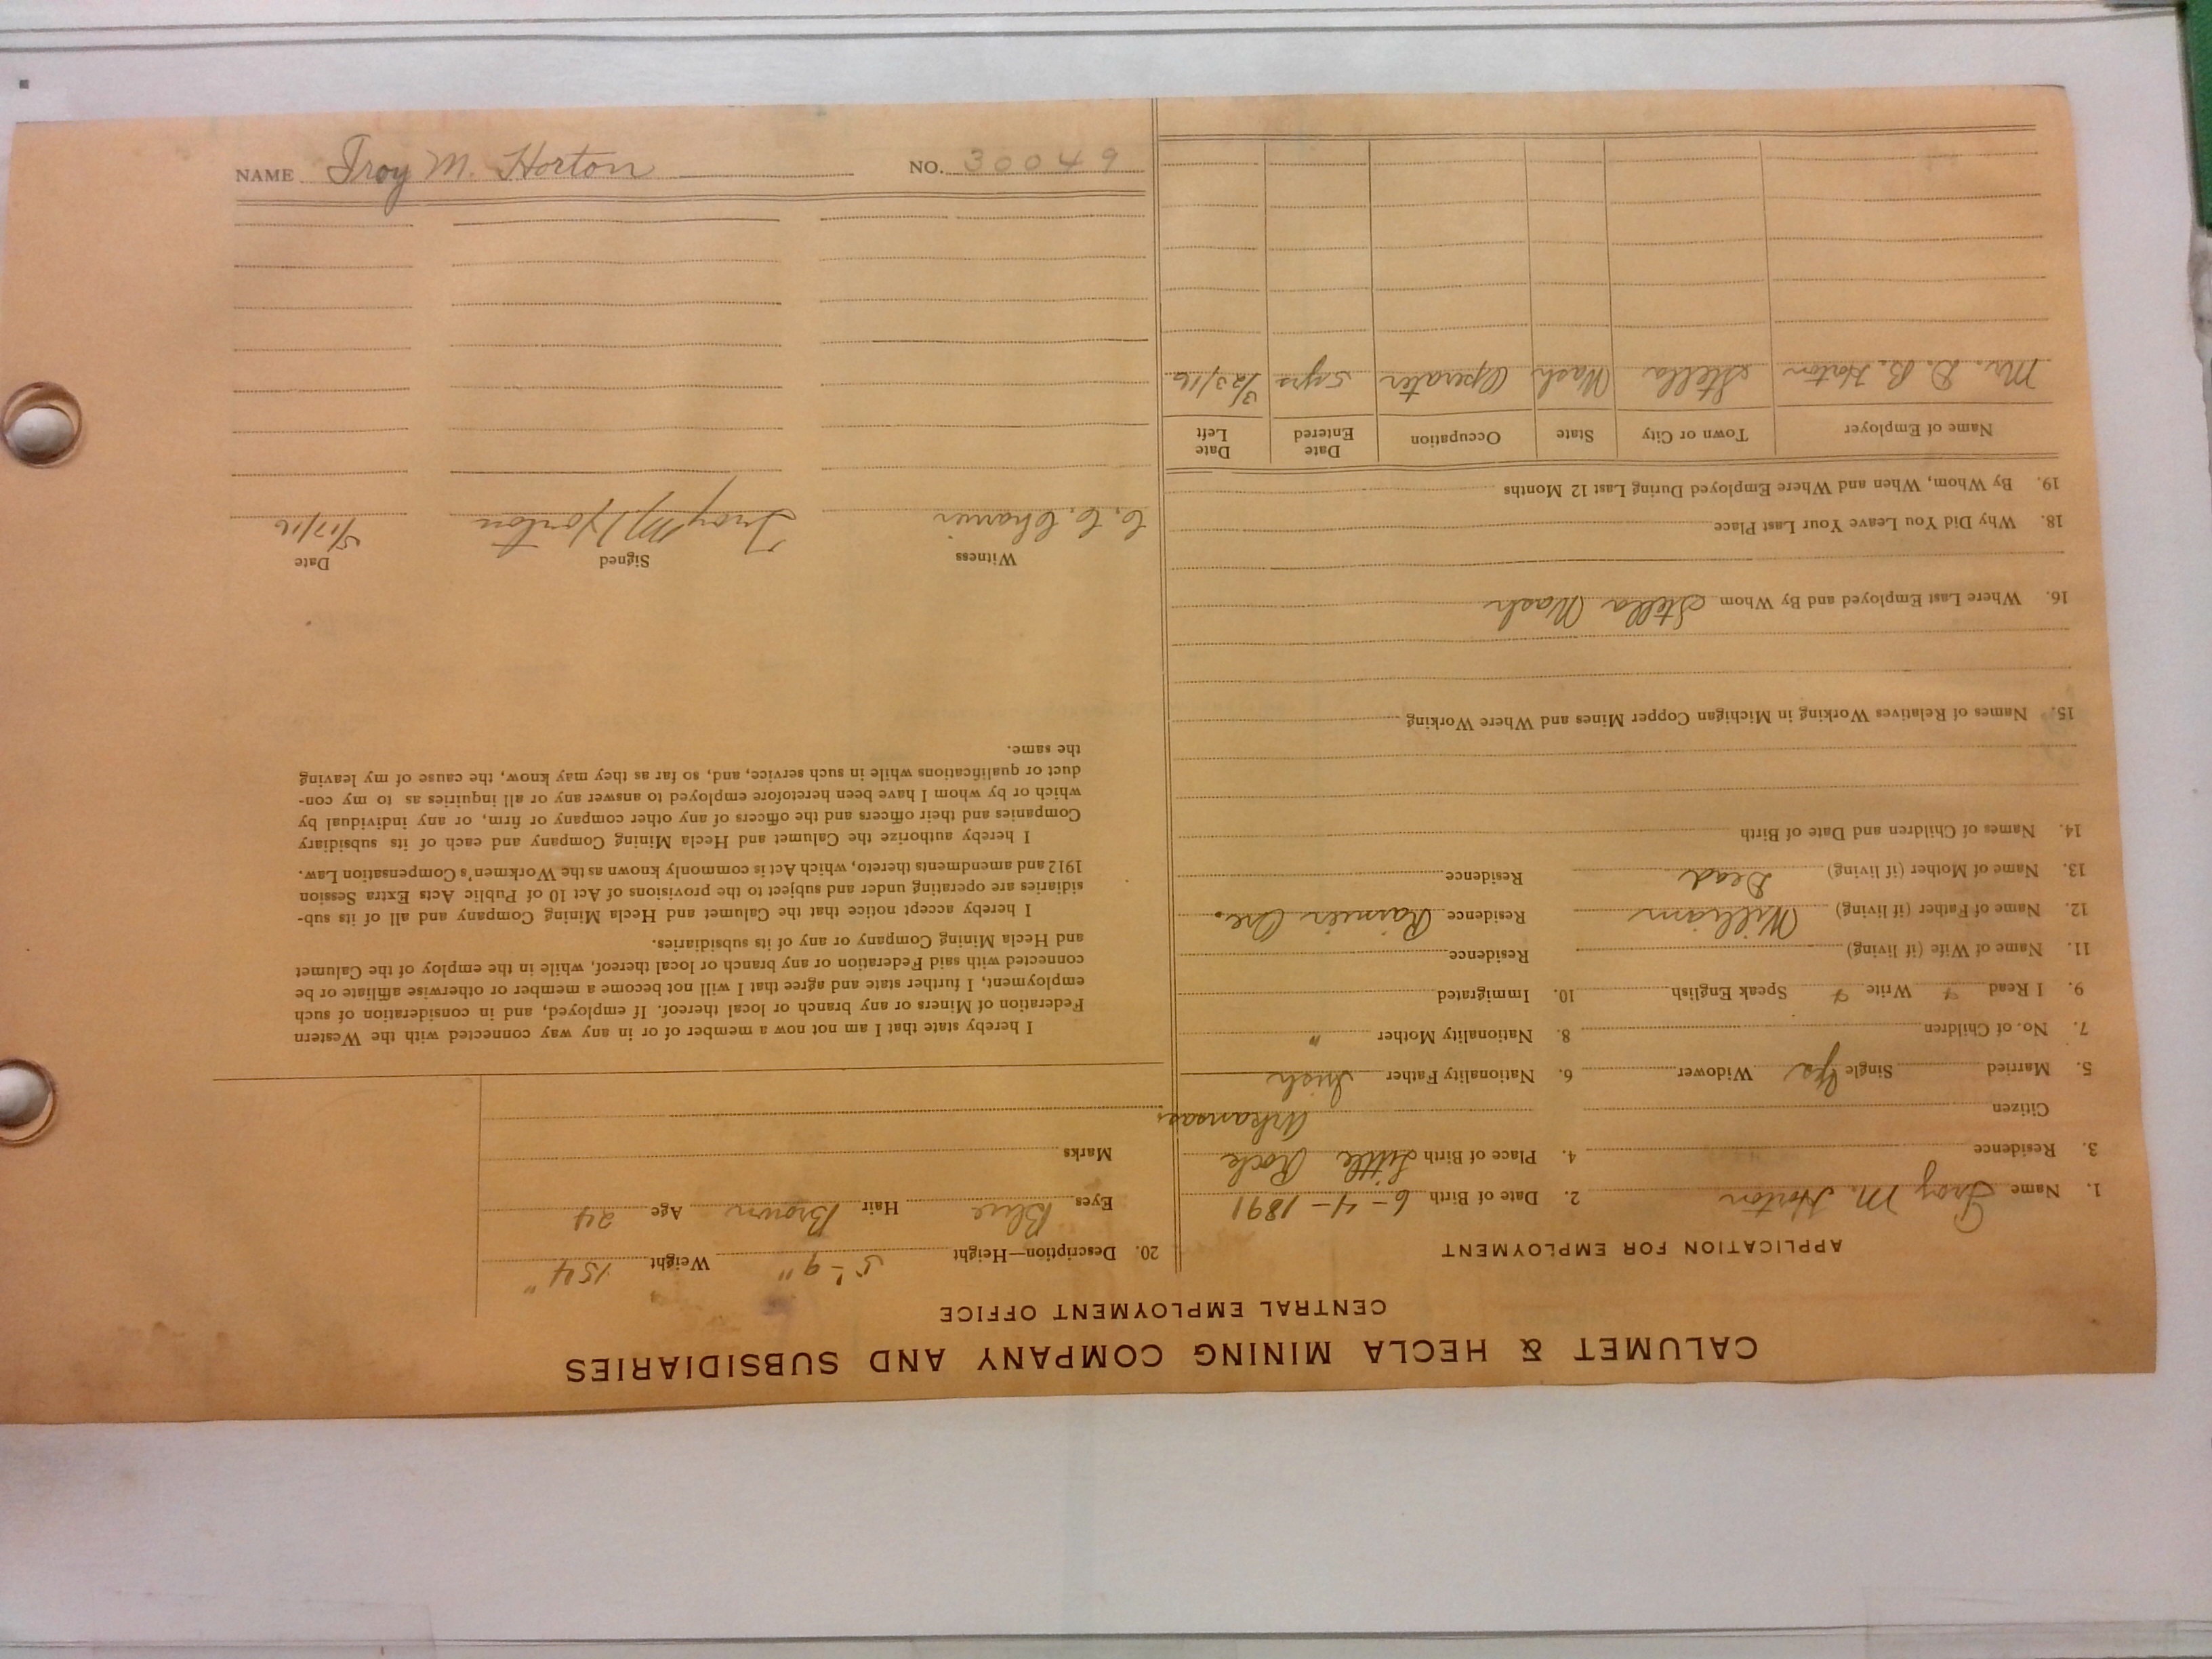 CALUMET & HECLA MINING COMPANY AND SUBSIDIARIES
CENTRAL EMPLOYMENT OFFICE
APPLICATION FOR EMPLOYMENT
1. Name Troy M. Horton 2. Date of Birth 6-4-1891
3. Residence 4. Place of Birth Little Rock
Arkansas
Citizen
5. Married Single Yes Widower 6. Nationality Father Irish
7. No. of Children 8. Nationality Mother "
9. I Read Write Speak English 10. Immigrated
11. Name of Wife (if living) Residence
12. Name of Father (if living) William Residence Rainier Ore.
13. Name of Mother (if living) Dead Residence
14. Names of Children and Date of Birth
15. Names of Relatives Working in Michigan Copper Mines and Where Working
16. Where Last Employed and By Whom Stella Wash
18. Why Did You Leave Your Last Place
19. By Whom, When and Where Employed During Last 12 Months
Name of Employer Town or City State Occupation Date Entered Date Left
Mr. D. B. Horton Stella Wash Operater 5 yrs 3/23/16
20. Description—Height 5'-9" Weight 154"
Eyes Blue Hair Brown Age 24
Marks
I hereby state that I am not now a member of or in any way connected with the Western
Federation of Miners or any branch or local thereof. If employed, and in consideration of such
employment, I further state and agree that I will not become a member or otherwise affiliate or be
connected with said Federation or any branch or local thereof, while in the employ of the Calumet
and Hecla Mining Company or any of its subsidiaries.
I hereby accept notice that the Calumet and Hecla Mining Company and all of its sub-
sidiaries are operating under and subject to the provisions of Act 10 of Public Acts Extra Session
1912 and amendments thereto, which Act is commonly known as the Workmen's Compensation Law.
I hereby authorize the Calumet and Hecla Mining Company and each of its subsidiary
Companies and their officers and the officers of any other company or firm, or any individual by
which or by whom I have been heretofore employed to answer any or all inquiries as to my con-
duct or qualifications while in such service, and, so far as they may know, the cause of my leaving
the same.
Witness Signed Date
C. C. Troy M. Horton 5/17/16
NAME Troy M. Horton NO. 30049